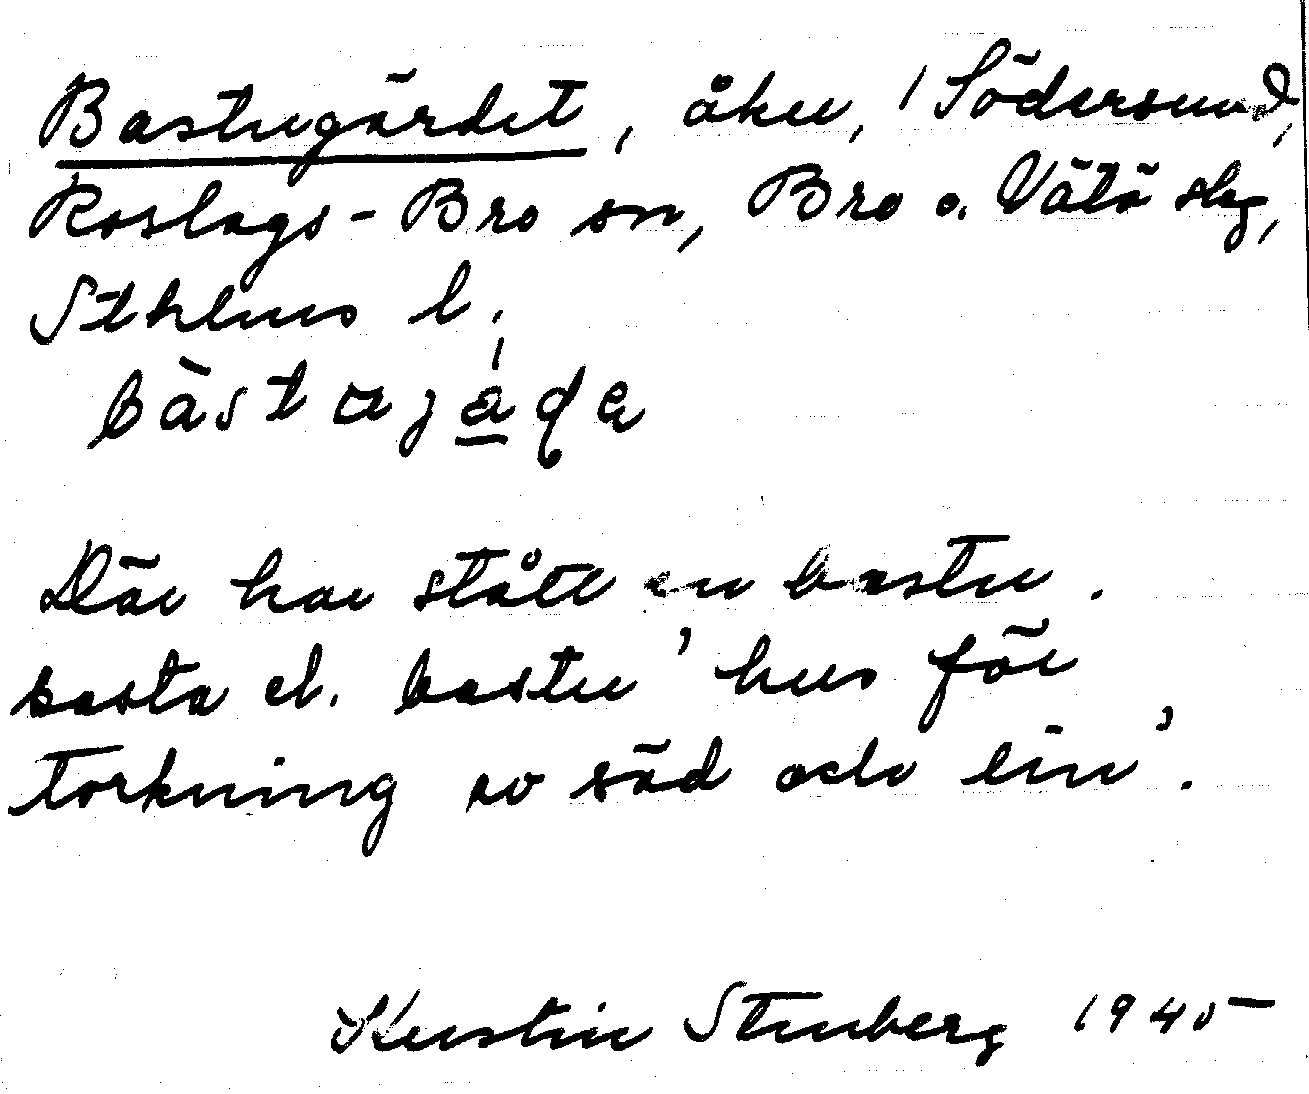 Bastugärdet, åker, Södersund,
Roslags-Bro sn, Bro o. Vätö slg,
Sthlms l.
Där har stått en bastu.
basta el. bastu 'hus för
torkning av säd och lin'.
Kerstin Stenberg 1945